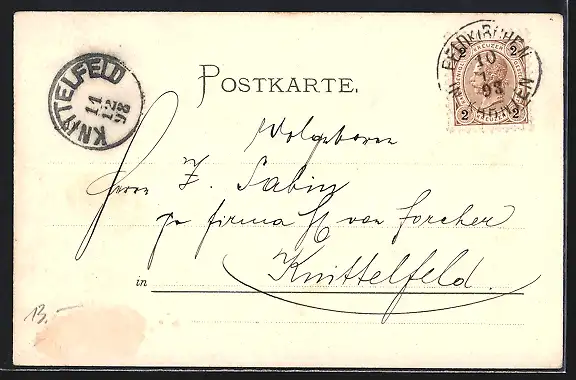 KNITTELFELD
11
12
98
POSTKARTE.
FELDKIRCHEN
10
98
KREUZER
2 2
2 2
Wolgeboren
Herrn Z. Sabin
pr firma H von Forcher
Knittelfeld.
in
13.-